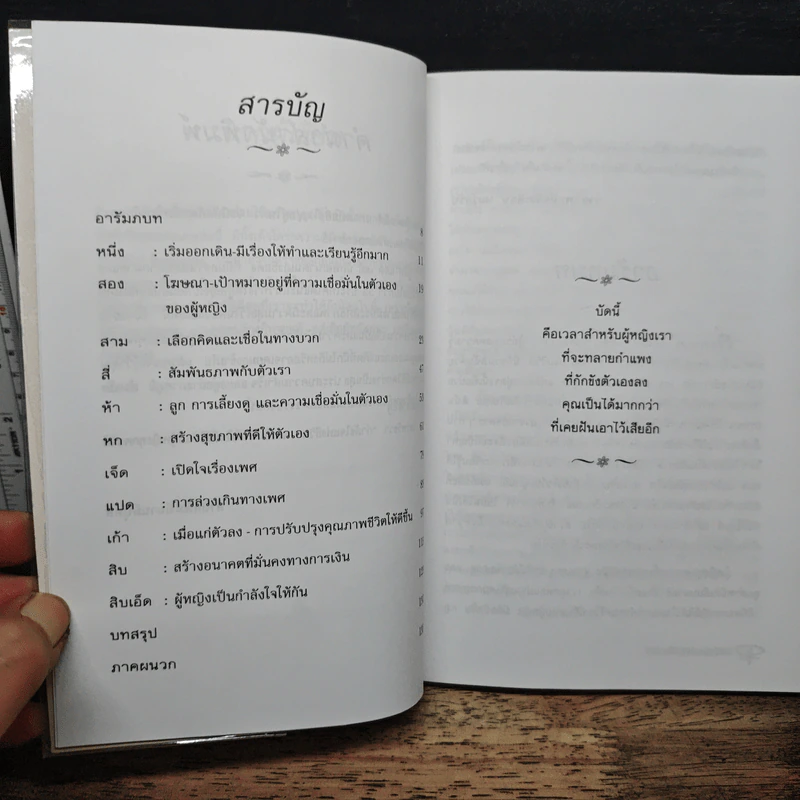 สารบัญ
อารัมภบท
หนึ่ง : เริ่มออกเดิน-มีเรื่องให้ทำและเรียนรู้อีกมาก 11
สอง : โฆษณา-เป้าหมายอยู่ที่ความเชื่อมั่นในตัวเอง 19
ของผู้หญิง
สาม : เลือกคิดและเชื่อในทางบวก
สี่ : สัมพันธภาพกับตัวเรา
ห้า : ลูก การเลี้ยงดู และความเชื่อมั่นในตัวเอง
หก : สร้างสุขภาพที่ดีให้ตัวเอง
เจ็ด : เปิดใจเรื่องเพศ
แปด : การล่วงเกินทางเพศ
เก้า : เมื่อแก่ตัวลง - การปรับปรุงคุณภาพชีวิตให้ดีขึ้น
สิบ : สร้างอนาคตที่มั่นคงทางการเงิน
สิบเอ็ด : ผู้หญิงเป็นกำลังใจให้กัน
บทสรุป
ภาคผนวก
บัดนี้
คือเวลาสำหรับผู้หญิงเรา
ที่จะทลายกำแพง
ที่กักขังตัวเองลง
คุณเป็นได้มากกว่า
ที่เคยฝันเอาไว้เสียอีก